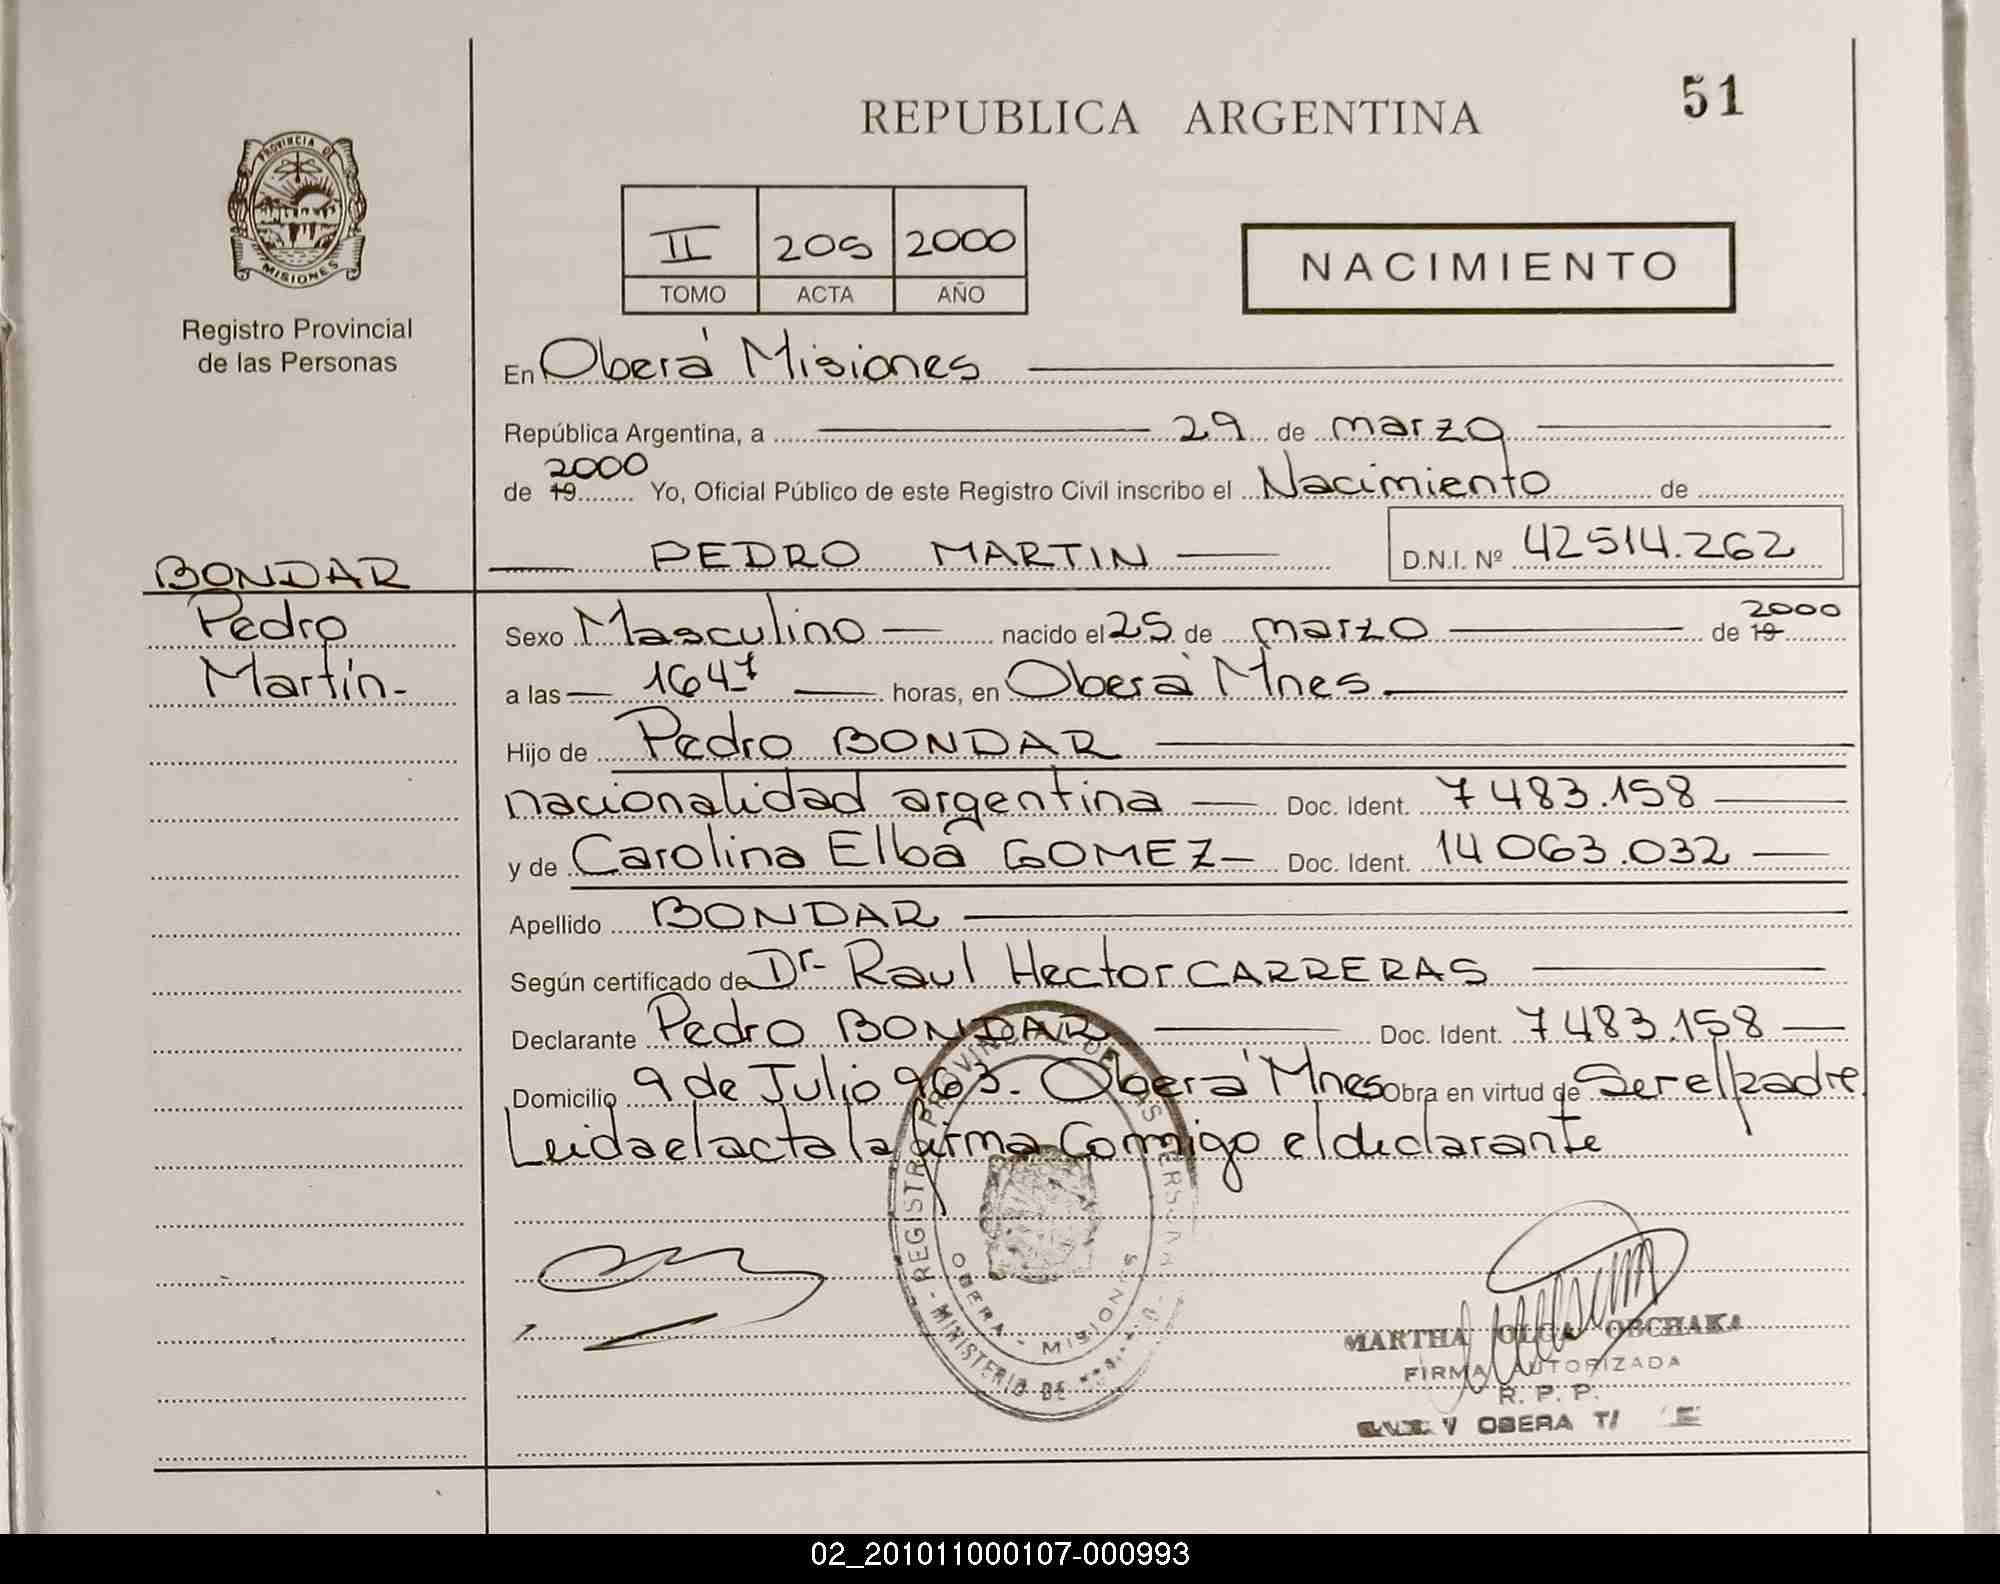 51
REPUBLICA ARGENTINA
PROVINCIA DE
MISIONES
Registro Provincial
de las Personas
II 205 2000
TOMO ACTA AÑO
NACIMIENTO
En Oberá Misiones
República Argentina, a 29 de marzo
de 19 2000 Yo, Oficial Público de este Registro Civil inscribo el Nacimiento de
PEDRO MARTIN D.N.I. Nº 42514.262
BONDAR
Pedro
Martín.-
Sexo Masculino nacido el 25 de marzo de 19 2000
a las 1647 horas, en Oberá Mnes
Hijo de Pedro BONDAR
nacionalidad argentina Doc. Ident. 7483.158
y de Carolina Elba GOMEZ Doc. Ident. 14063.032
Apellido BONDAR
Según certificado de Dr- Raul Hector CARRERAS
Declarante Pedro BONDAR Doc. Ident. 7483.158
Domicilio 9 de Julio 963. Oberá Mnes Obra en virtud de Ser el padre
Leida el acta la firma Comigo el declarante
REGISTRO PROVINCIAL DE LAS PERSONAS
MINISTERIO DE
OBERA - MISIONES
MARTHA OLGA OBCHAKA
FIRMA AUTORIZADA
R. P. P.
OBERA
02_201011000107-000993